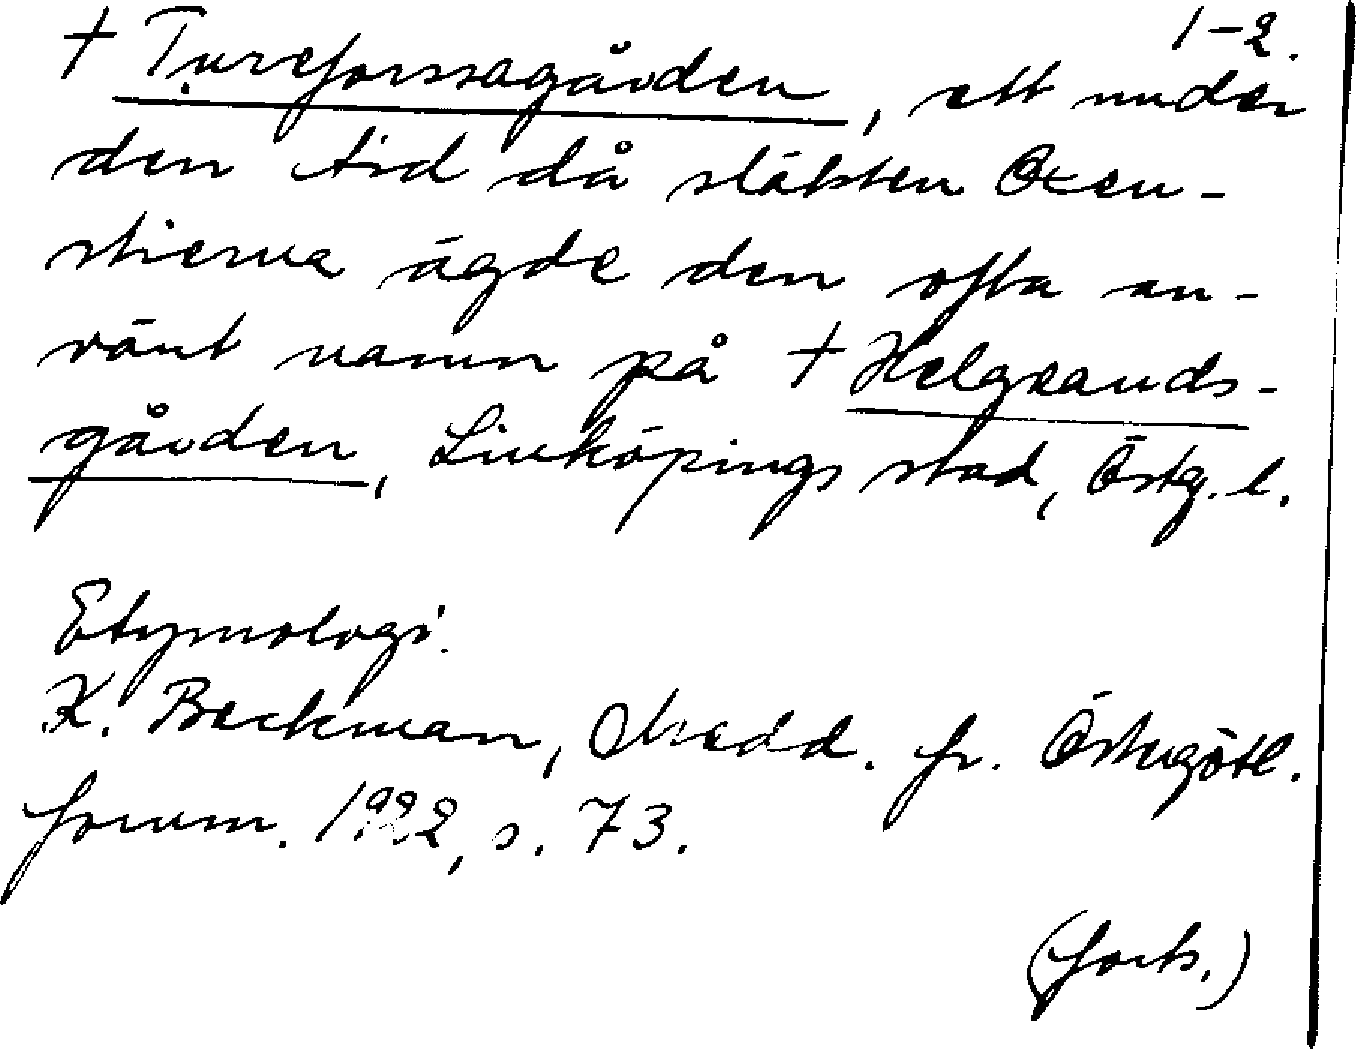 1-2.
† Tureforssagården, ett under
den tid då släkten Oxen-
stierna ägde den ofta an-
vänt namn på † Helgeands-
gården, Linköpings stad, Östg. l.
Etymologi.
K. Beckman, Medd. fr. Östergötl.
fornm. 1922, s. 73.
(forts.)